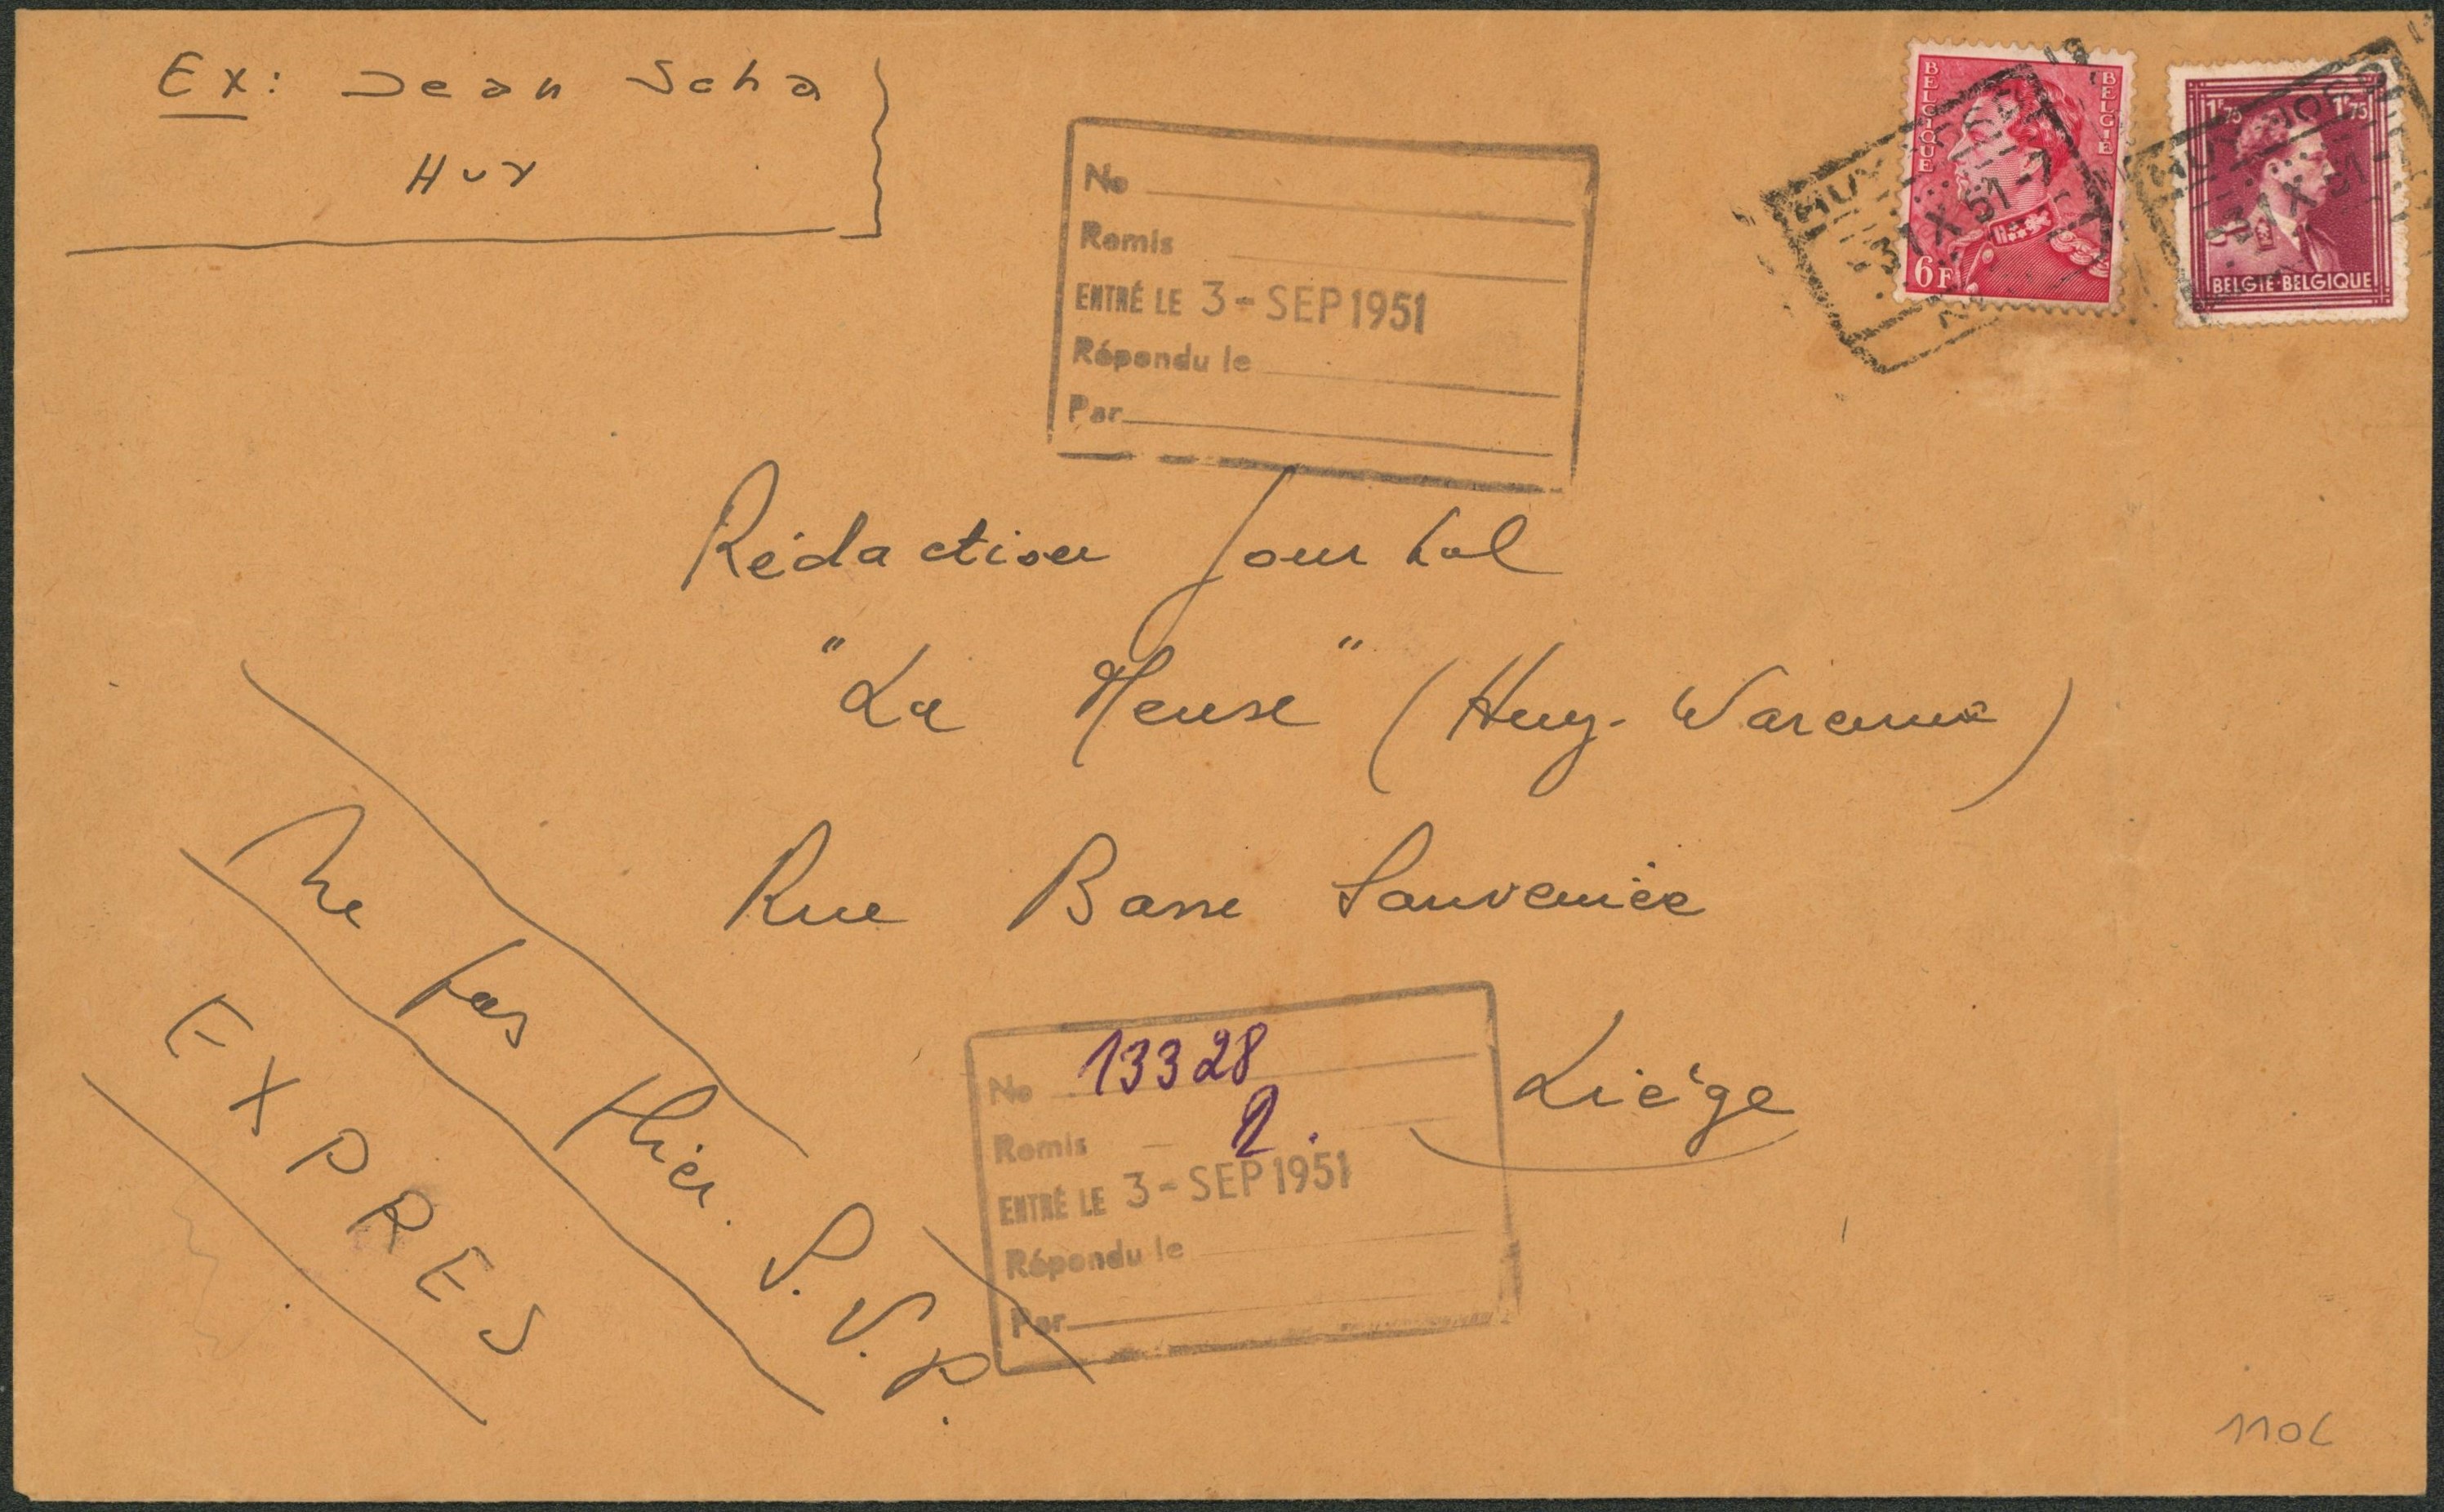 Ex: Jean Scha
HUY
BELGIQUE
BELGIE
6F
1F75
1F75
BELGIE-BELGIQUE
HUY
3 IX 51
HUY
3 IX 51
No
Remis
ENTRÉ LE 3-SEP 1951
Répondu le
Par
Rédaction Journal
"La Meuse" (Huy-Waremme)
Rue Basse Sauvenière
Liège
Ne pas plier. S.V.P.
EXPRES
No 13328
Remis 2.
ENTRÉ LE 3-SEP 1951
Répondu le
Par